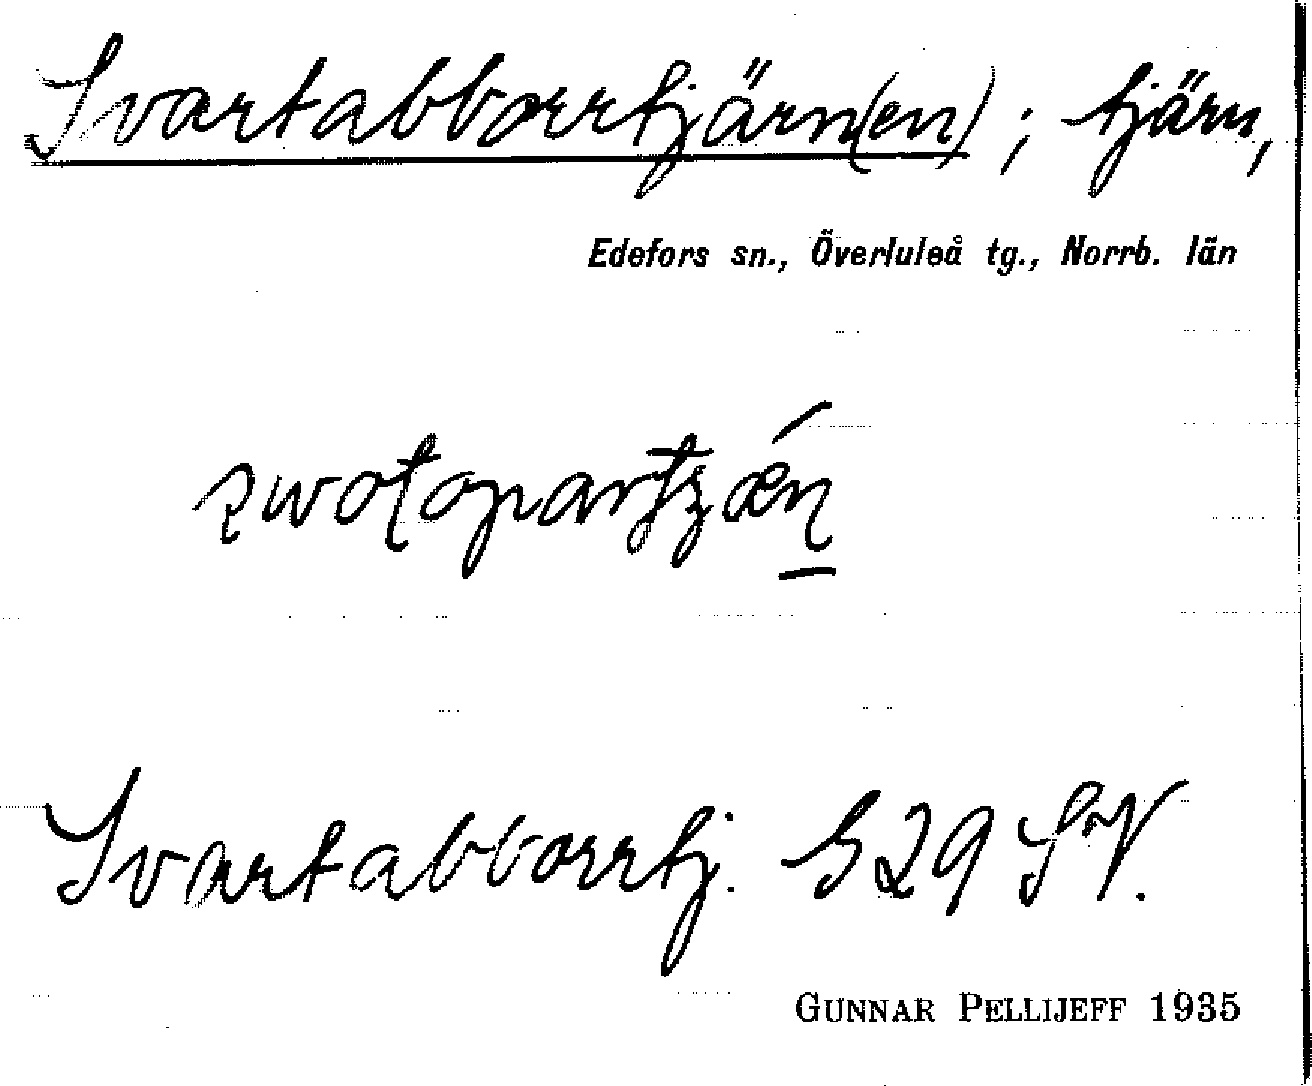 Svartabborrtjärn(en); tjärn,
Edefors sn., Överluleå tg., Norrb. län
Svartabborrtj. S29 SV.
GUNNAR PELLIJEFF 1935